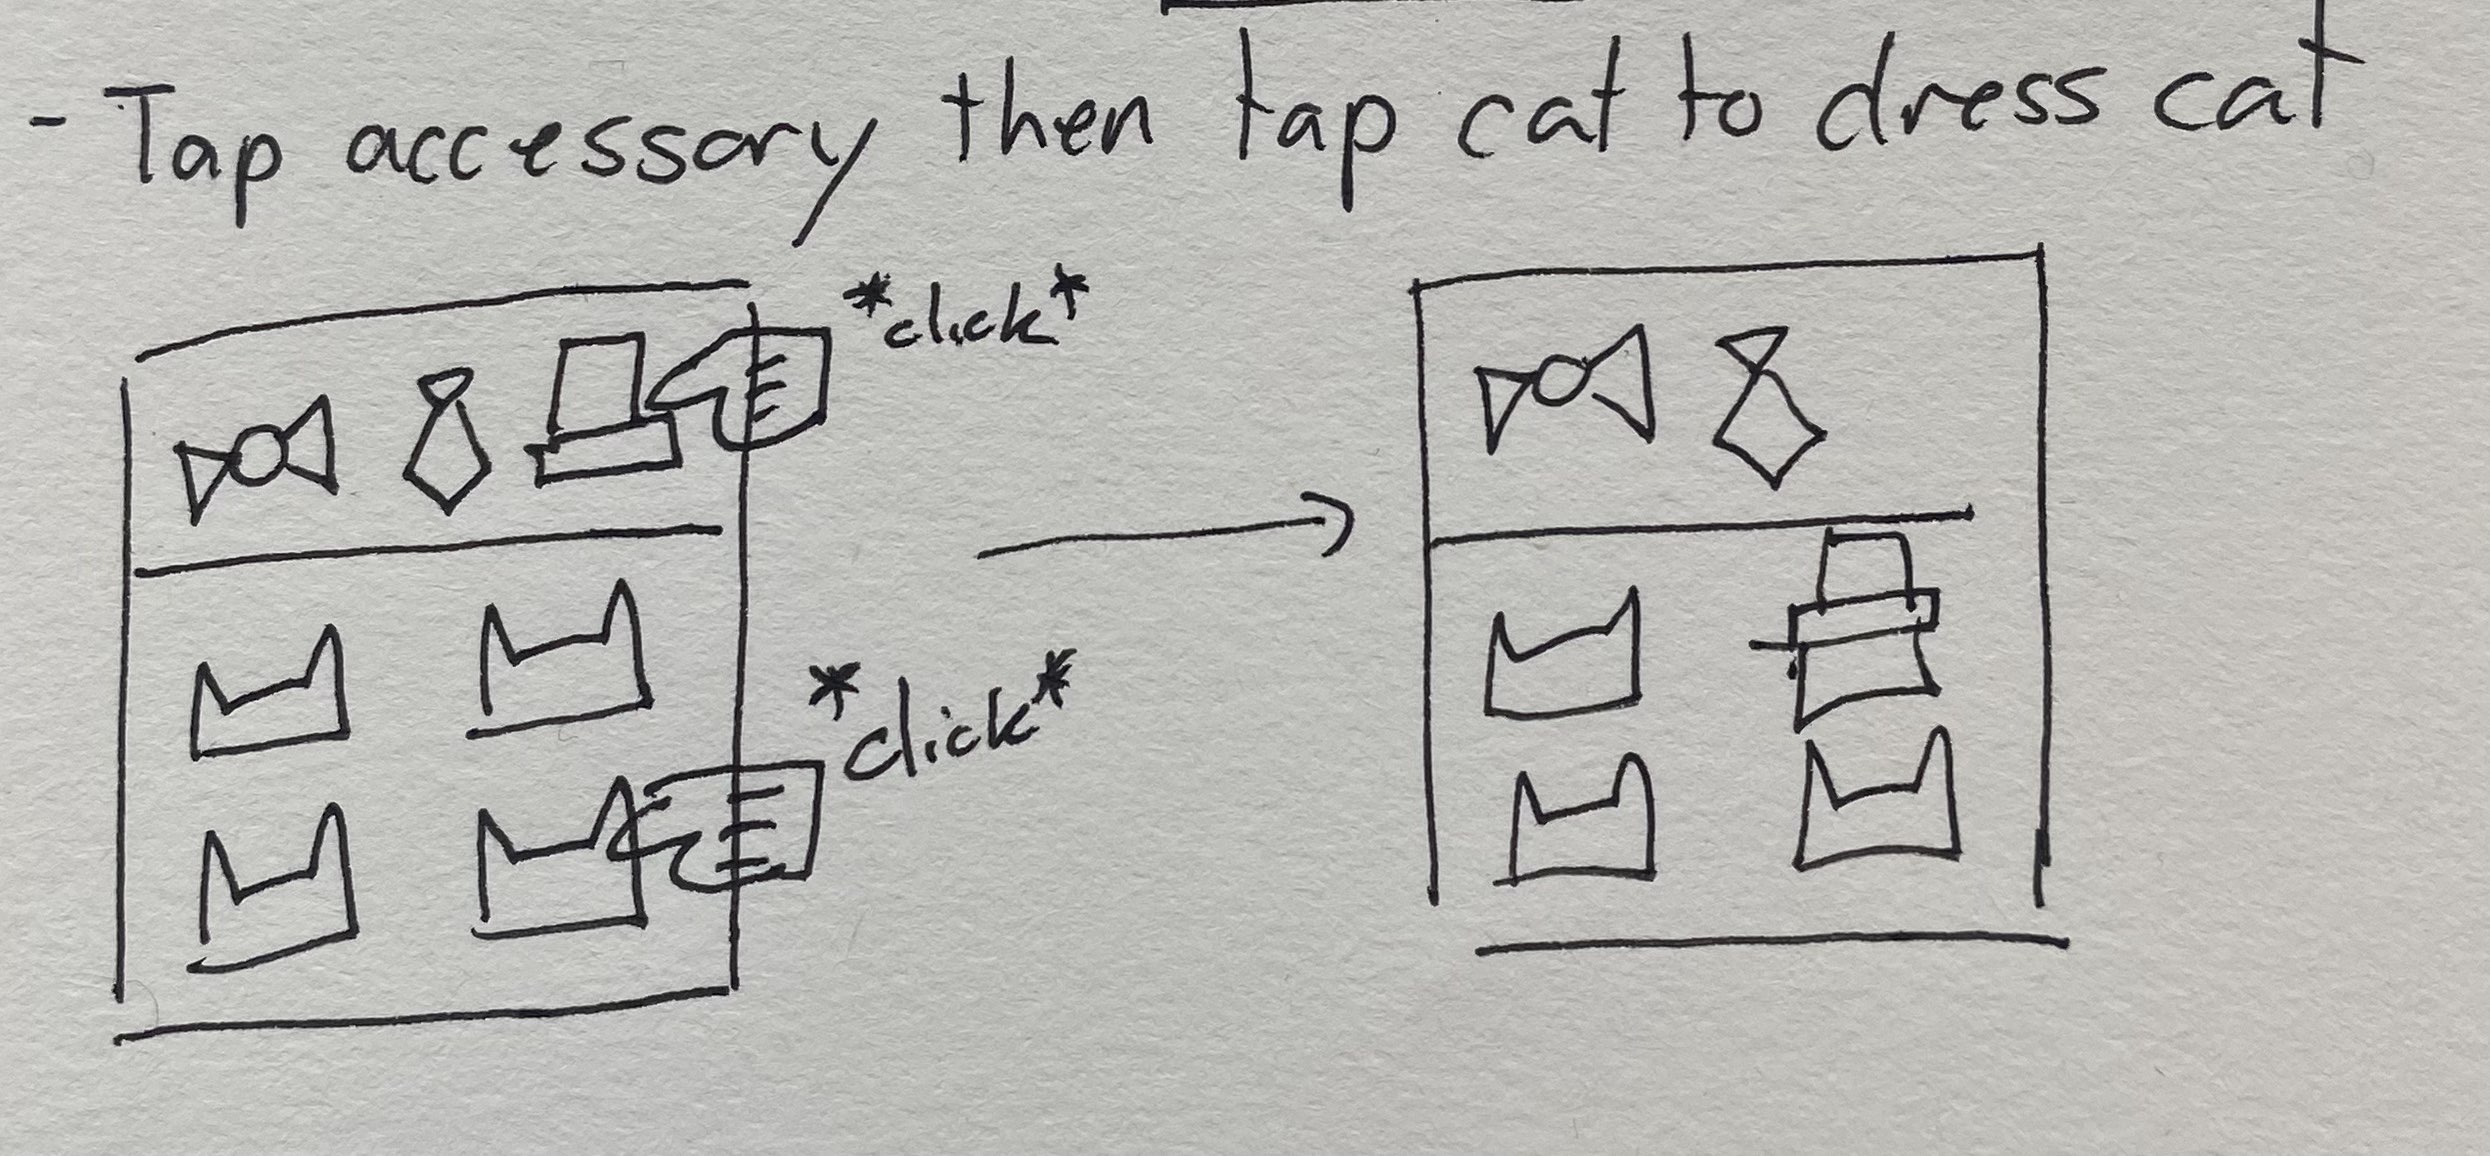 - Tap accessory then tap cat to dress cat
*click*
*click*